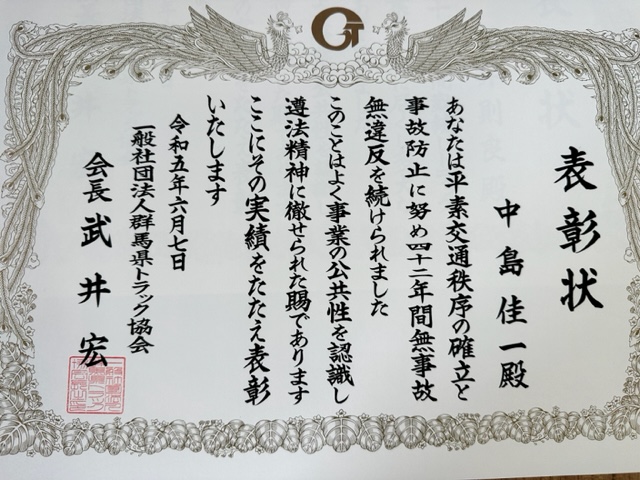 表彰状
中島佳一殿
あなたは平素交通秩序の確立と
事故防止に努め四十二年間無事故
無違反を続けられました
このことはよく事業の公共性を認識し
遵法精神に徹せられた賜であります
ここにその実績をたたえ表彰
いたします
令和五年六月七日
一般社団法人群馬県トラック協会
会長 武井宏